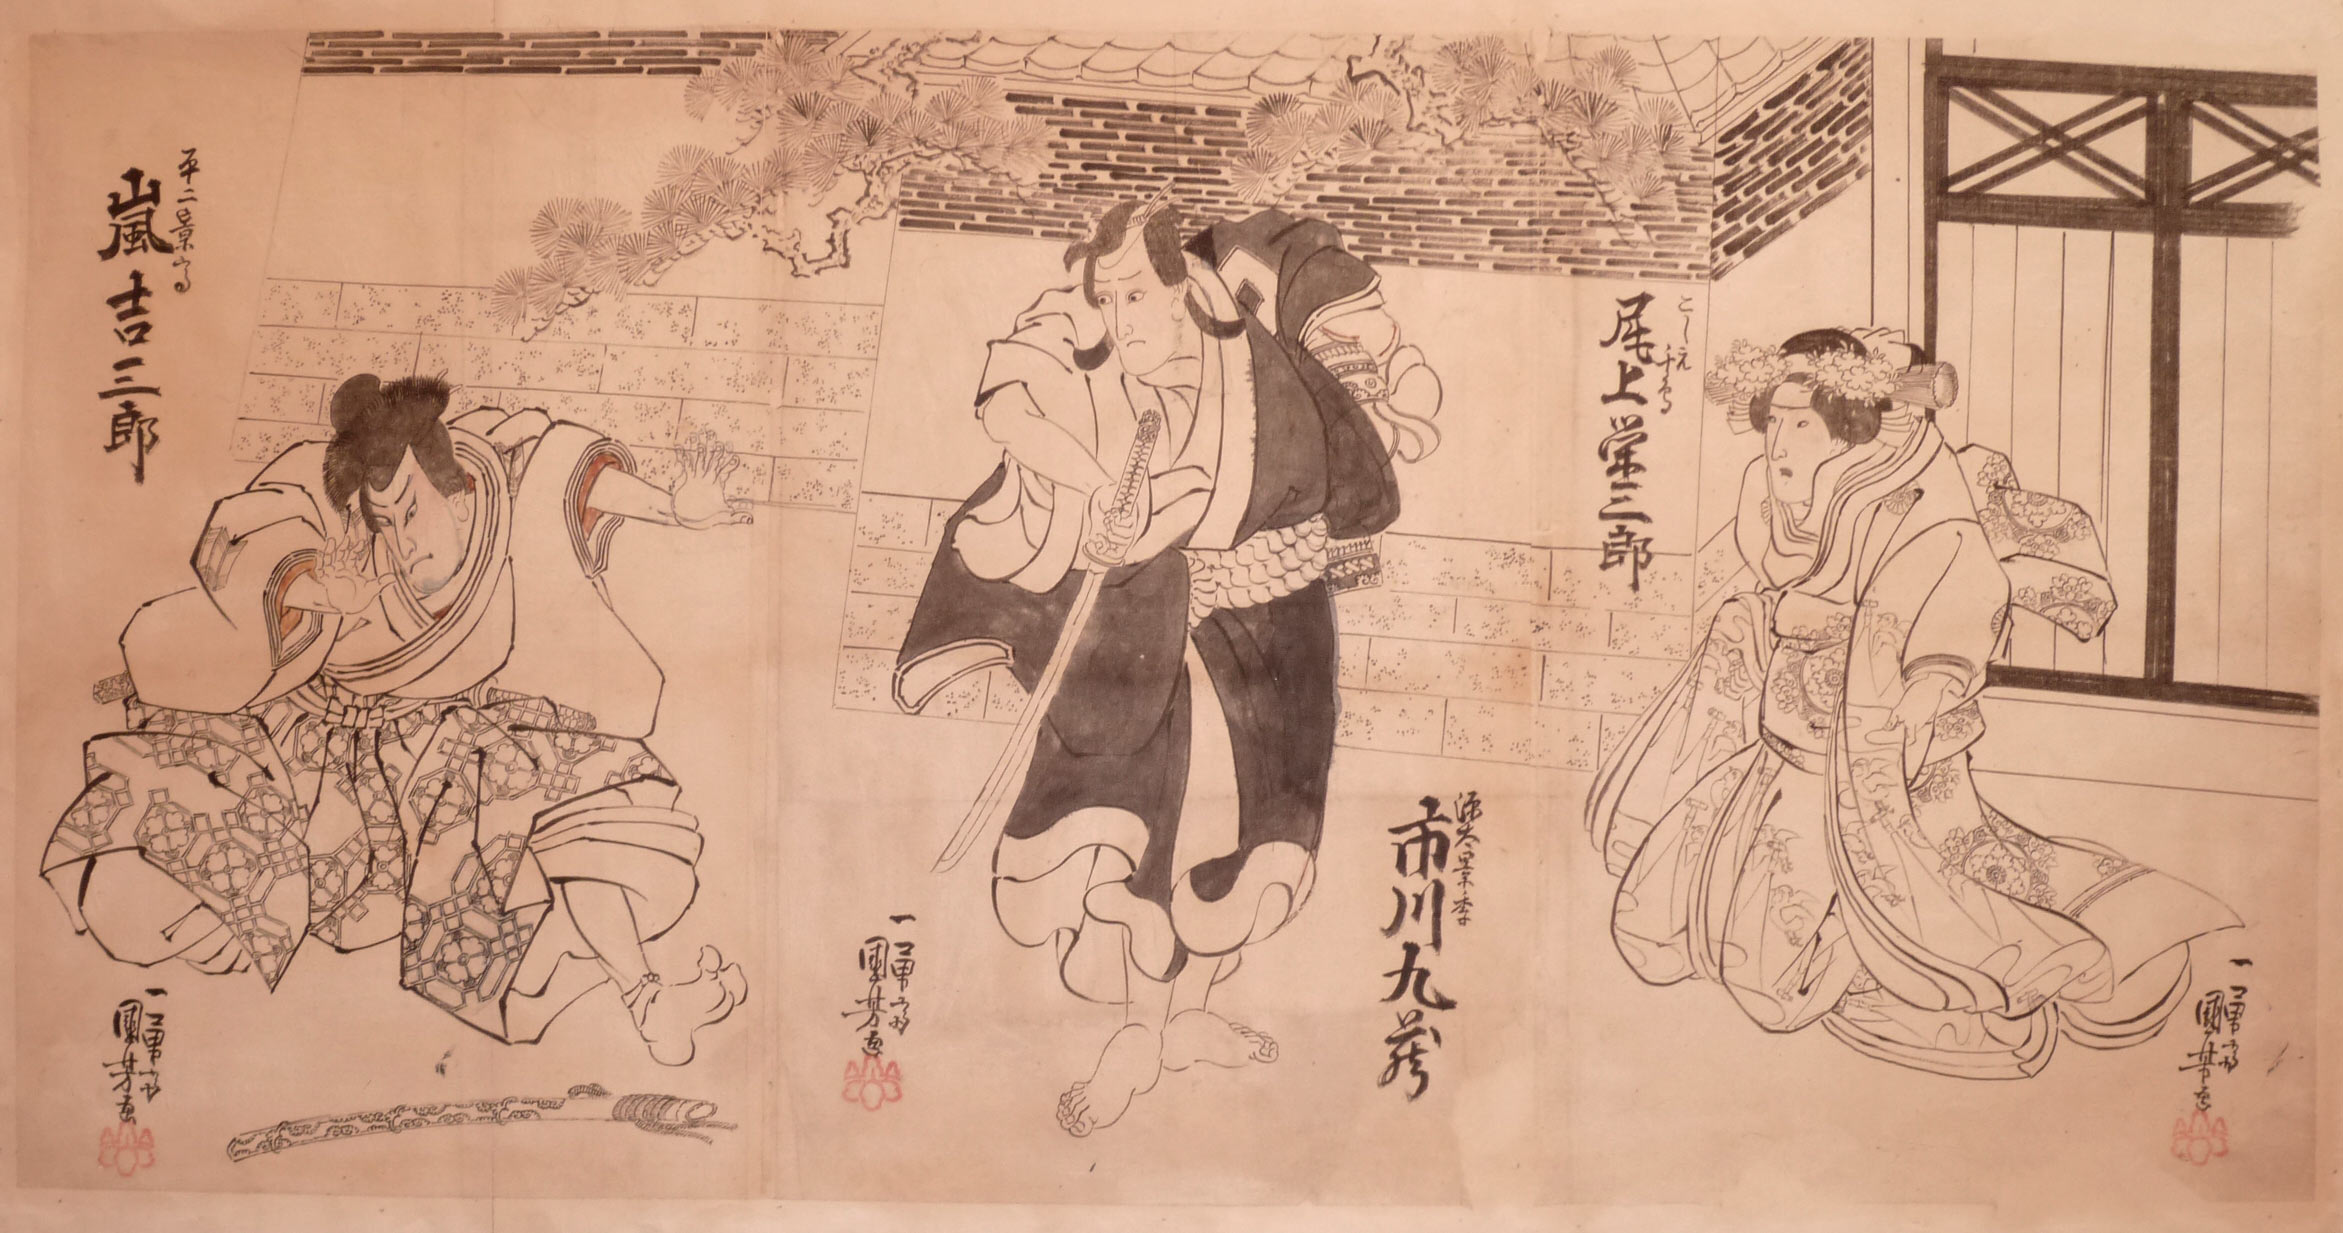 こし元千鳥
尾上栄三郎
一勇斎
國芳画
源太景季
市川九蔵
一勇斎
國芳画
平二景高
嵐吉三郎
一勇斎
國芳画